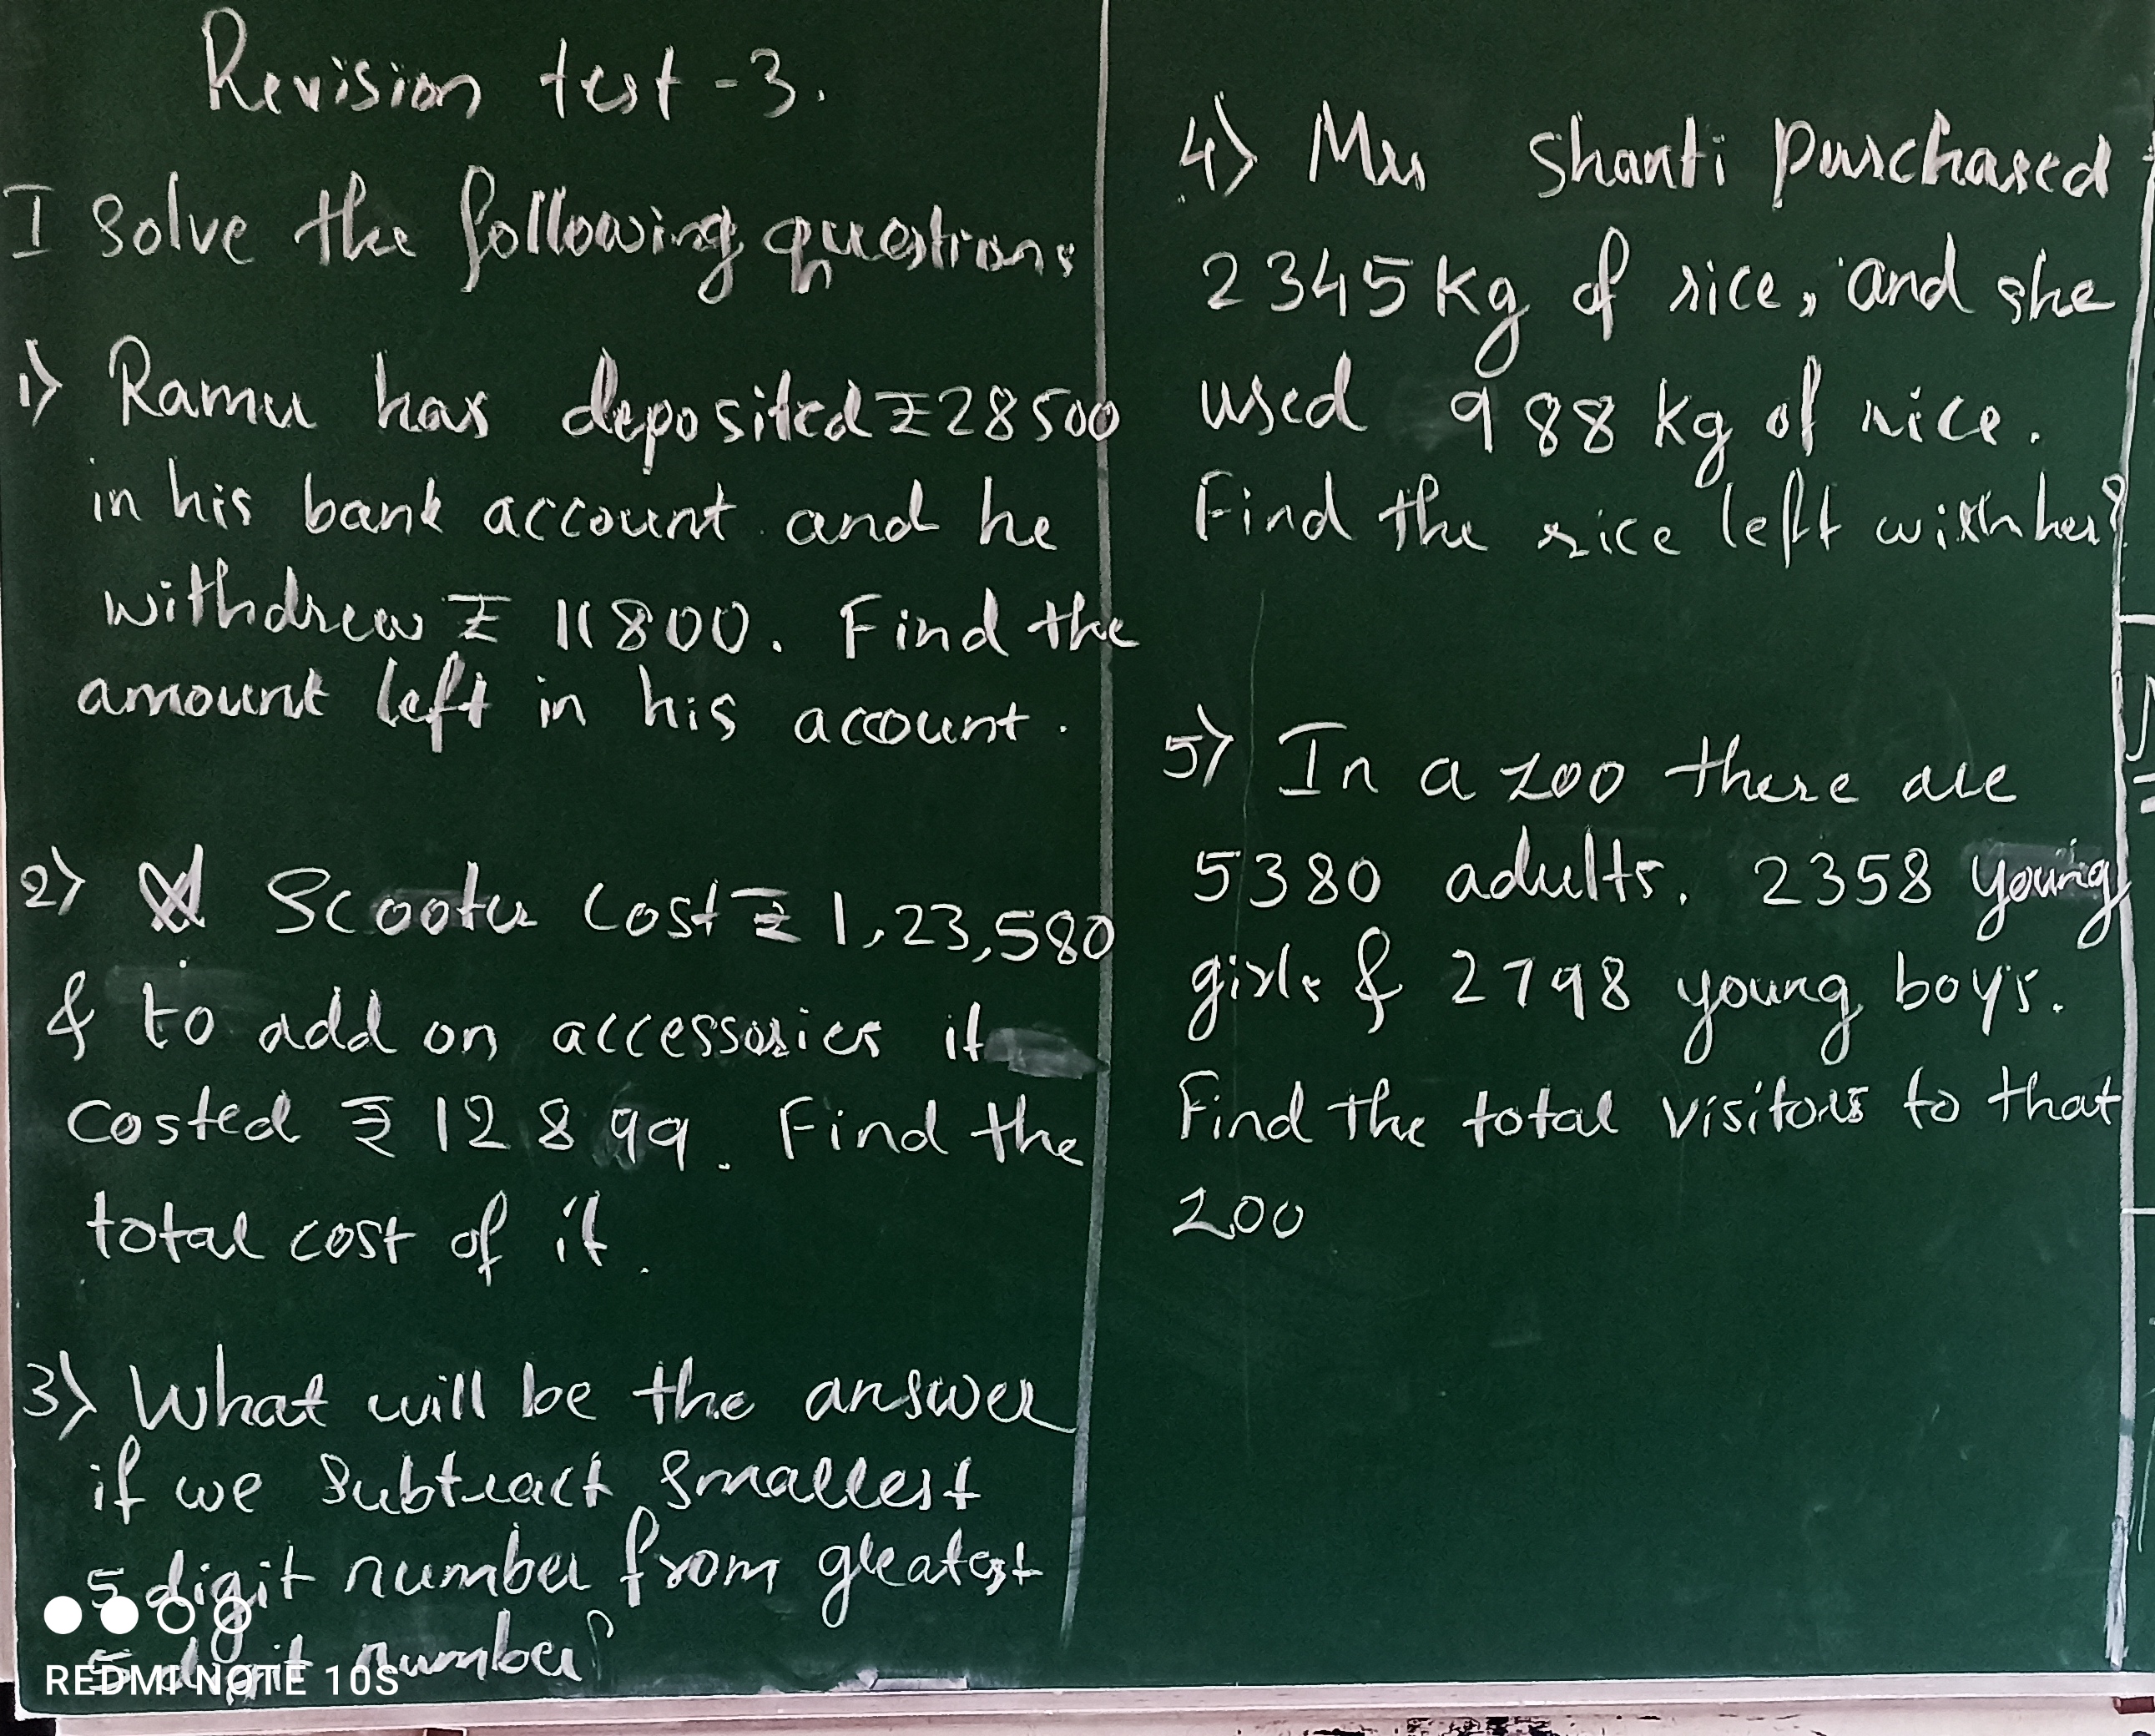 Revision test - 3.
I Solve the following questions
1) Ramu has deposited ₹28500
in his bank account and he
withdrew ₹ 11800. Find the
amount left in his account.
2) Scooter Cost ₹ 1,23,580
& to add on accessories it
costed ₹ 12899. Find the
total cost of it.
3) What will be the answer
if we Subtract Smallest
5 digit number from greatest
5 digit number?
4) Mrs Shanti purchased
2345 kg of rice, and she
used 988 kg of rice.
Find the rice left with her?
5) In a zoo there are
5380 adults. 2358 young
girls & 2798 young boys.
Find the total visitors to that
zoo
REDMI NOTE 10S